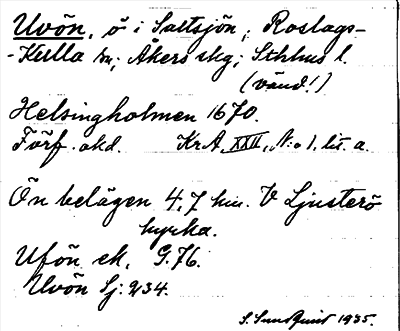 Uvön, ö i Saltsjön, Roslags-
-Kulla sn; Åkers skg; Sthlms l.
(vänd!)
Helsingholmen 1670.
Förf. akd. Kr.A. XXII, N:o 1, lit. a.
Ön belägen 4,7 km. V Ljusterö
kyrka.
Ufön ek. G.76.
Uvön Sj: 234.
S. Sundquist 1935.